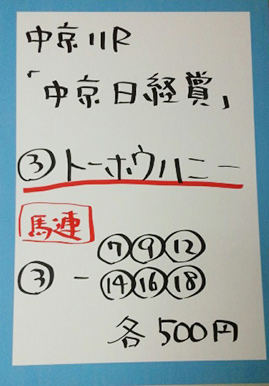 中京11R
「中京日経賞」
③トーホウハニー
馬連
③-⑦⑨⑫
⑭⑯⑱
各500円